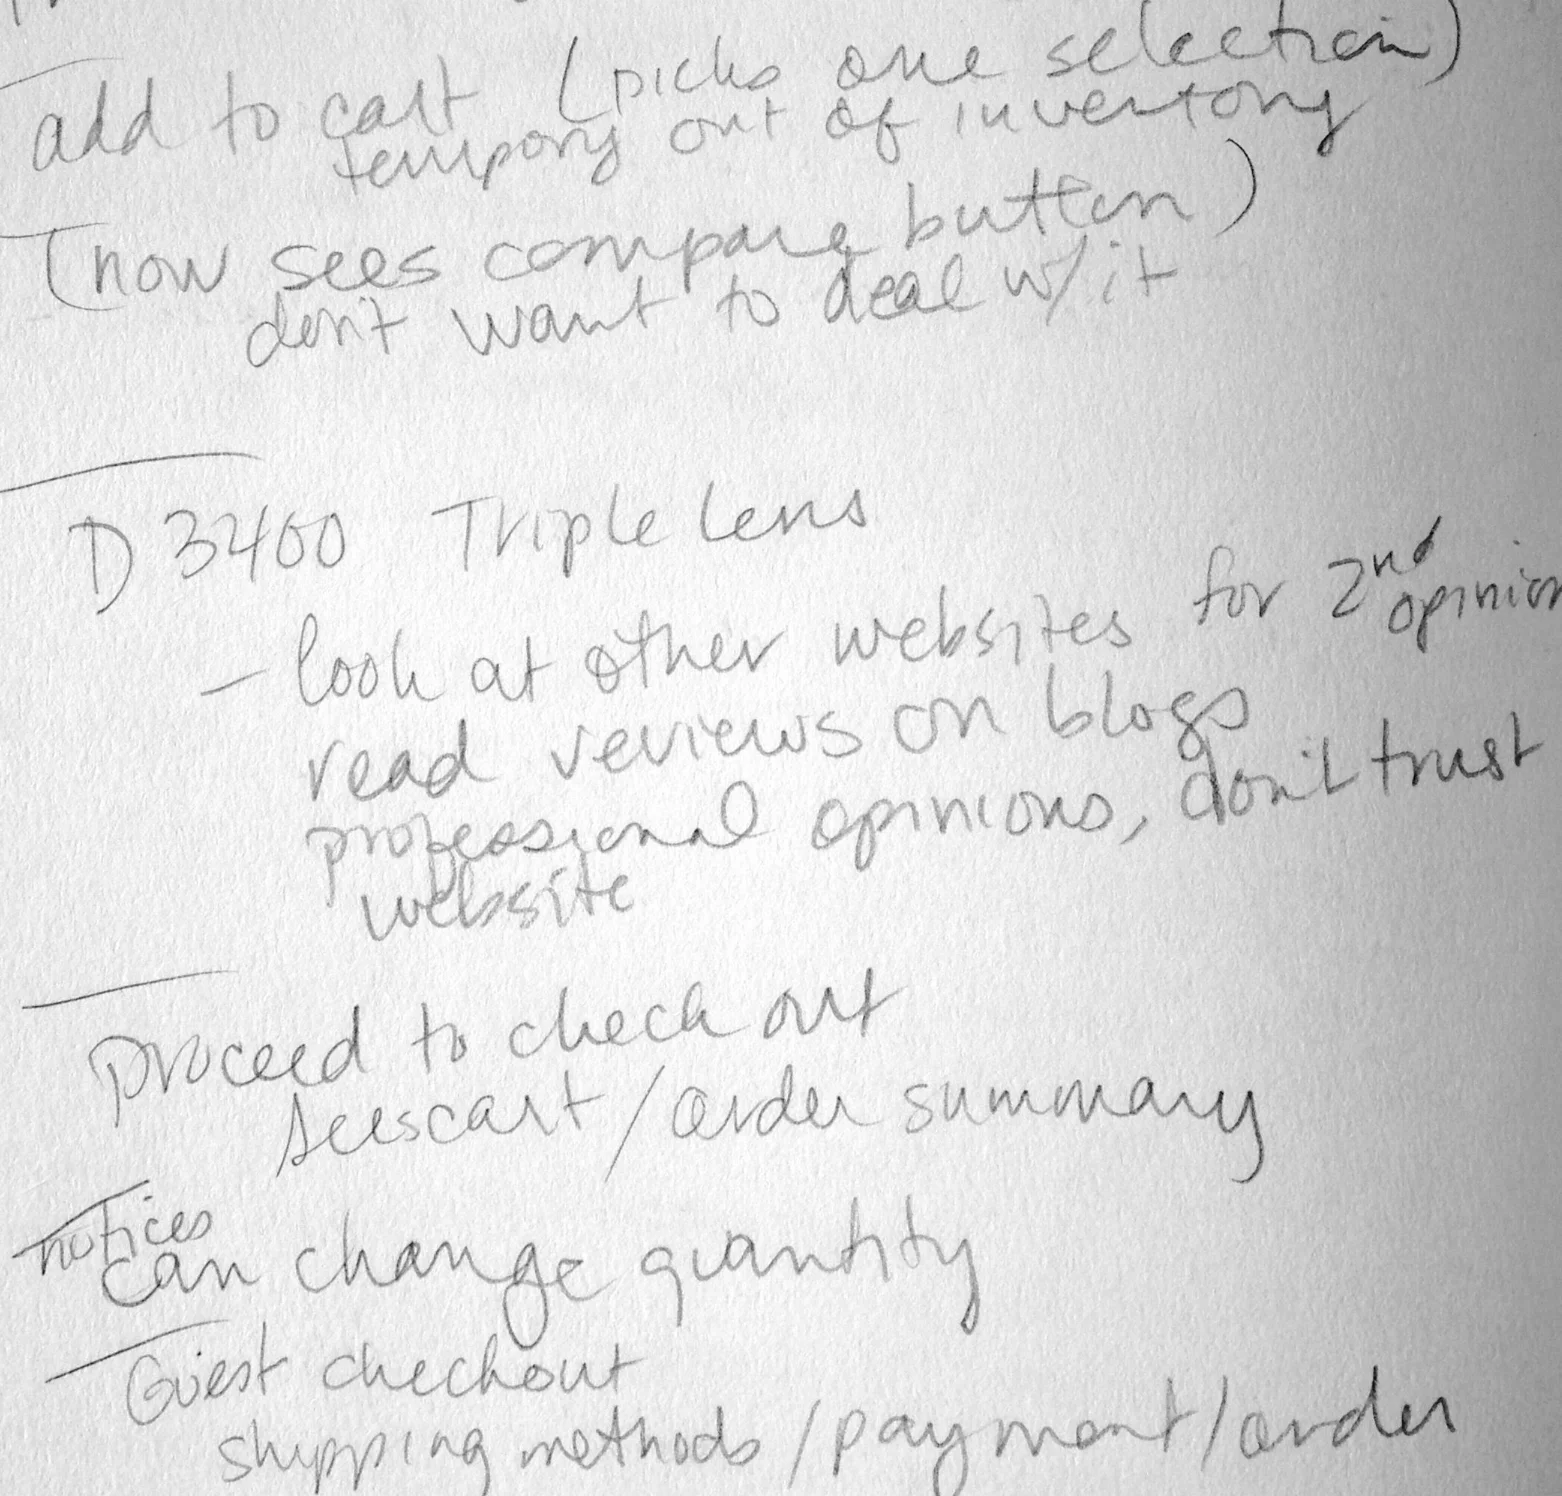 add to cart (picks one selection)
tempory out of inventory
(now sees compare button)
don't want to deal w/ it
D3400 Triple lens
- look at other websites for 2nd opinion
read reviews on blogs
professional opinions, don't trust
website
proceed to check out
sees cart / order summary
notices
can change quantity
Guest checkout
shipping methods / payment / order